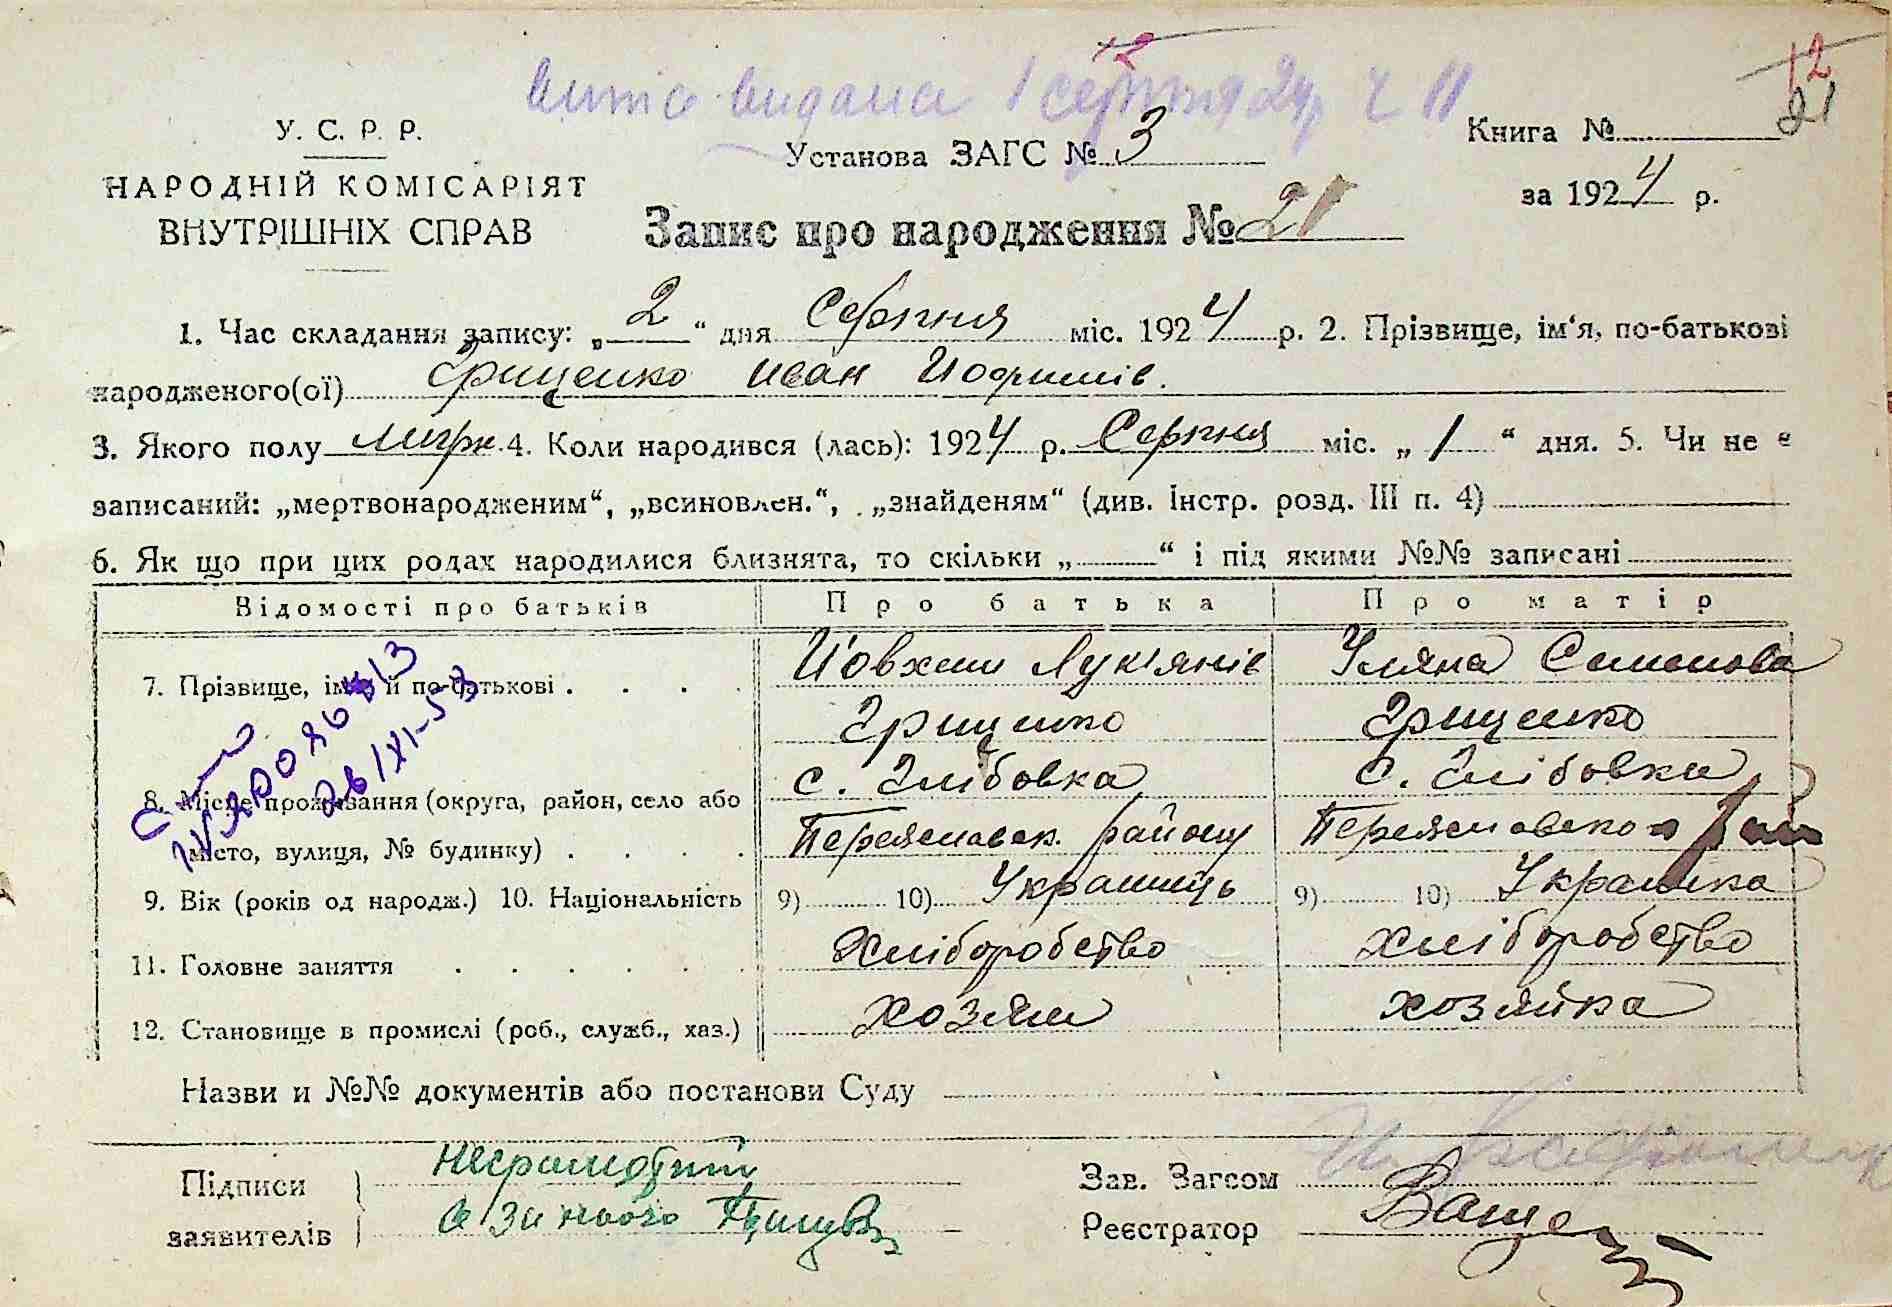 12
12
21
видана 1 серпня 24 р. Ч 11
У. С. Р. Р.
НАРОДНІЙ КОМІСАРІЯТ
ВНУТРІШНІХ СПРАВ
Установа ЗАГС № 3
Книга №
за 1924 р.
Запис про народження № 21
1. Час складання запису: „2“ дня Серпня міс. 1924 р. 2. Прізвище, ім‘я, по-батькові
народженого(ої) Грищенко Иван Йофимів.
3. Якого полу 4. Коли народився (лась): 1924 р. Серпня міс. „1“ дня. 5. Чи не є
записаний: „мертвонародженим“, „всиновлен.“, „знайденям“ (див. Інстр. розд. III п. 4)
6. Як що при цих родах народилися близнята, то скільки „ “ і під якими №№ записані
Відомості про батьків Про батька Про матір
7. Прізвище, ім‘я й по-батькові . . . . Йовхим Лук'янів Уляна Семенова
Грищенко Грищенко
8. Місце проживання (округа, район, село або с. Глібовка с. Глібовки
місто, вулиця, № будинку) . . . . Переяславськ. району Переяславского рай
9. Вік (років од народж.) 10. Національність 9) 10) Українець 9) 10) Українка
11. Головне заняття . . . . . . Хліборобство хліборобство
12. Становище в промислі (роб., служб., хаз.) хозяин хозяйка
26/XI-53
Назви и №№ документів або постанови Суду
Підписи Неграмотний
заявителів а за нього
Зав. Загсом
Реєстратор Ваще